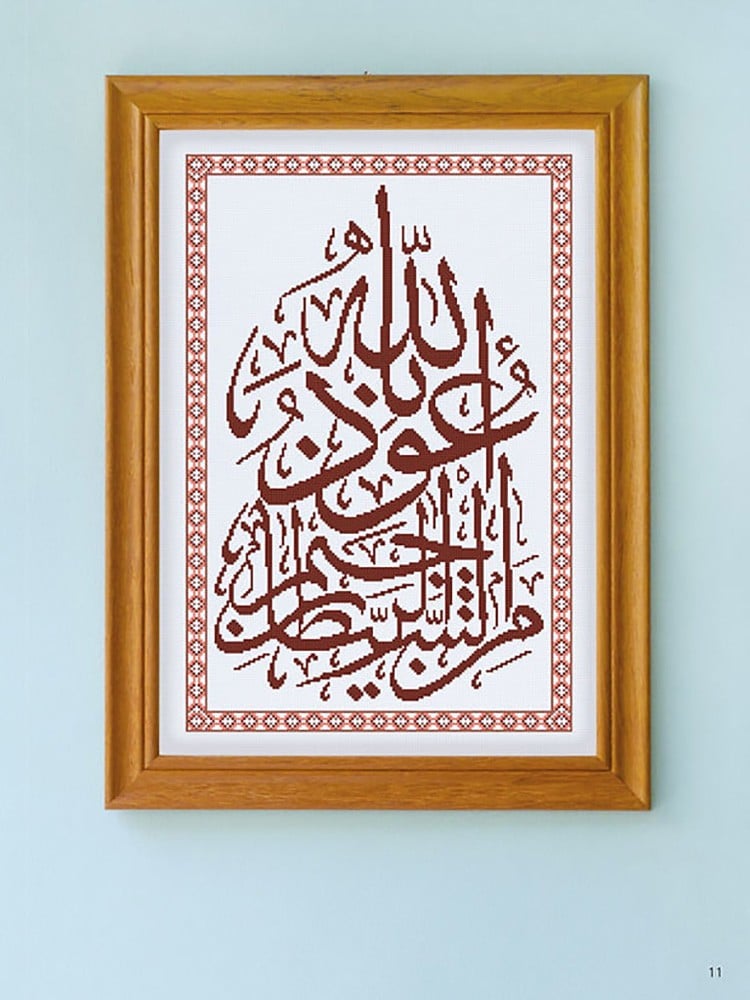 أعوذ بالله
من الشيطان الرجيم
11